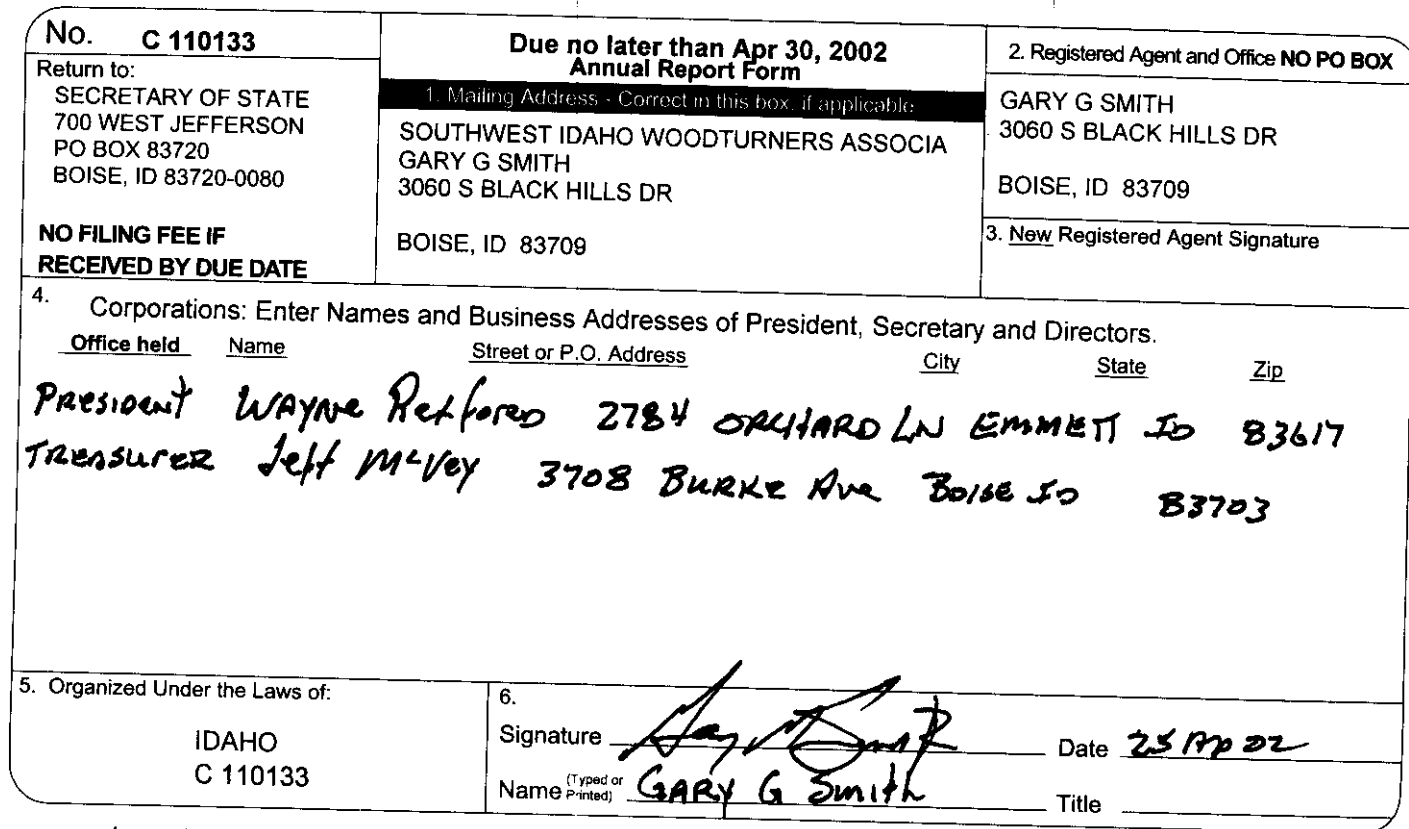 No. C 110133
Return to:
SECRETARY OF STATE
700 WEST JEFFERSON
PO BOX 83720
BOISE, ID 83720-0080
NO FILING FEE IF
RECEIVED BY DUE DATE
Due no later than Apr 30, 2002
Annual Report Form
1. Mailing Address - Correct in this box, if applicable
SOUTHWEST IDAHO WOODTURNERS ASSOCIA
GARY G SMITH
3060 S BLACK HILLS DR
BOISE, ID 83709
2. Registered Agent and Office NO PO BOX
GARY G SMITH
3060 S BLACK HILLS DR
BOISE, ID 83709
3. New Registered Agent Signature
4. Corporations: Enter Names and Business Addresses of President, Secretary and Directors.
Office held Name Street or P.O. Address City State Zip
PRESIDENT WAYNE 2784 ORCHARD LN EMMETT ID 83617
TREASURER Jeff McVey 3708 BURKE Ave BOISE ID 83703
5. Organized Under the Laws of:
IDAHO
C 110133
6.
Signature Date 25 Ap 02
Name (Typed or Printed) GARY G Smith Title